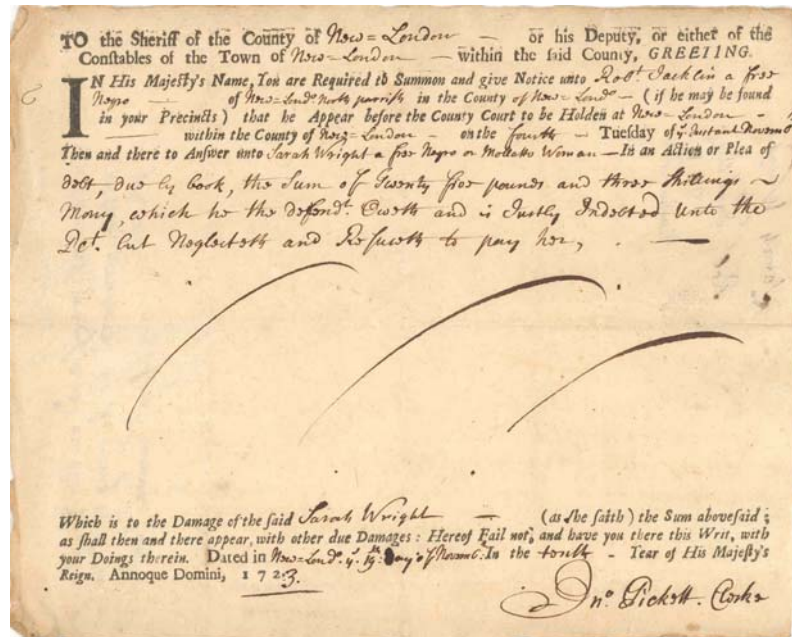 TO the Sheriff of the County of New=London — or his Deputy, or either of the
Conſtables of the Town of New=London — within the ſaid County, GREETING.
IN His Majeſty's Name, You are Required to Summon and give Notice unto Robt. Jacklin a free
Negro — of New=Londo. North parrish in the County of New=Londo. — (if he may be found
in your Precincts) that he Appear before the County Court to be Holden at New=London —
— within the County of New=London — on the fourth — Tueſday of ye. Instant Novemb
Then and there to Anſwer unto Sarah Wright a free Negro or Molatto Woman — In an Action or Plea of
debt, due by book, the Sum of Twenty five pounds and three Shillings
Mony, which he the defendt. Oweth and is Justly Indebted unto the
but Neglecteth and Refuseth to pay her, . —
Which is to the Damage of the ſaid Sarah Wright — (as ſhe ſaith) the Sum aboveſaid;
as ſhall then and there appear, with other due Damages: Hereof Fail not, and have you there this Writ, with
your Doings therein. Dated in New=Londo. ye. 19th. Day of Novemb: In the tenth - Year of His Majeſty's
Reign. Annoque Domini, 1723.
Jno. Pickett. Clerke